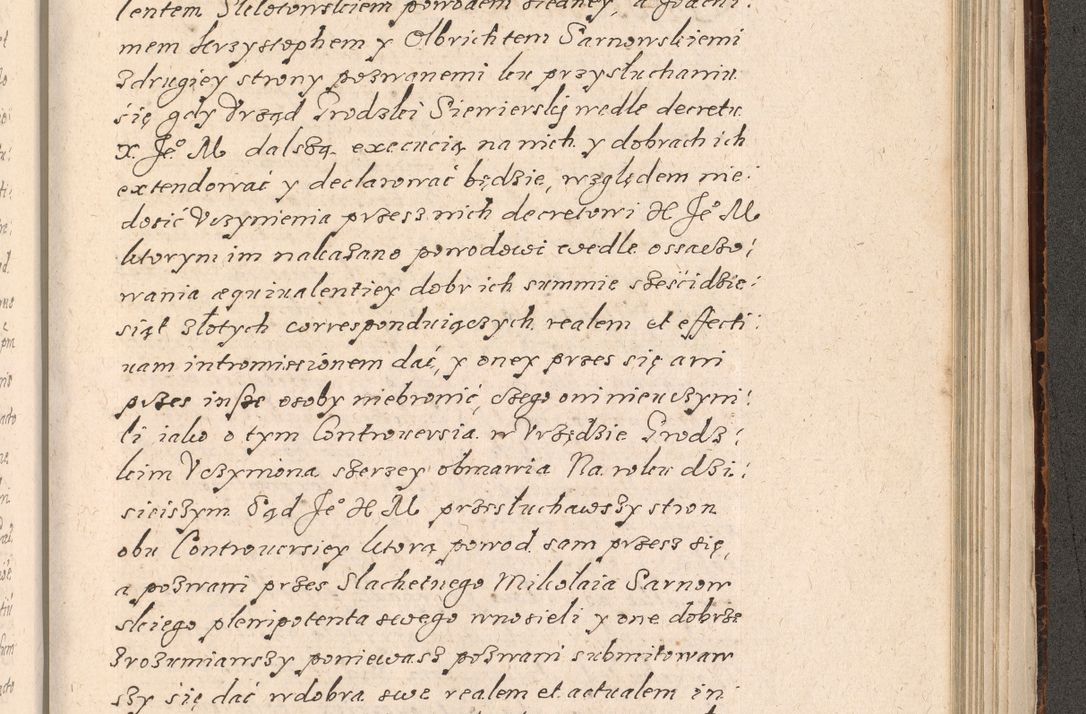 lentem Sklotowskiem powodem siedney, a Joachi:
mem Krzysztophem y Olbrichtem Sarnowskiemi
z drugiey strony pozwanemi ku przysłuchaniu
się gdy Vrząd Grodzki Siewierskj wedle decretu
X. Je° M dalszą execucią na nich y dobrach ich
extendować y declarować będzie, względem nie:
dosić Vczynienia przesz nich decretowi X Je° M
ktorym im nakazano powodowi wedle ossaczo:
wania æquiualentiey dobr ich summie sześcidzie:
siąt złotych correspondniączych realem et effecti:
uam intromissionem dać, y oney przes się ani
przes insze osoby niebronić, czego oni nieuczyni:
li iako o tym Controuersia w Vrzędzie Grodz:
kim Vczyniona szerzey obmawia Na roku dzi:
sieiszym Sąd Je° X M przesłuchawszy stron
obu Controuersiey ktorą powod sam przesz się,
a pozwani przes Slachetnego Mikołaia Sarnow
skiego plenipotenta swego wnosieli y one dobrze
zrozumiawszy poniewasz pozwani submitowaw
szy się dać w dobra swe realem et actualem in